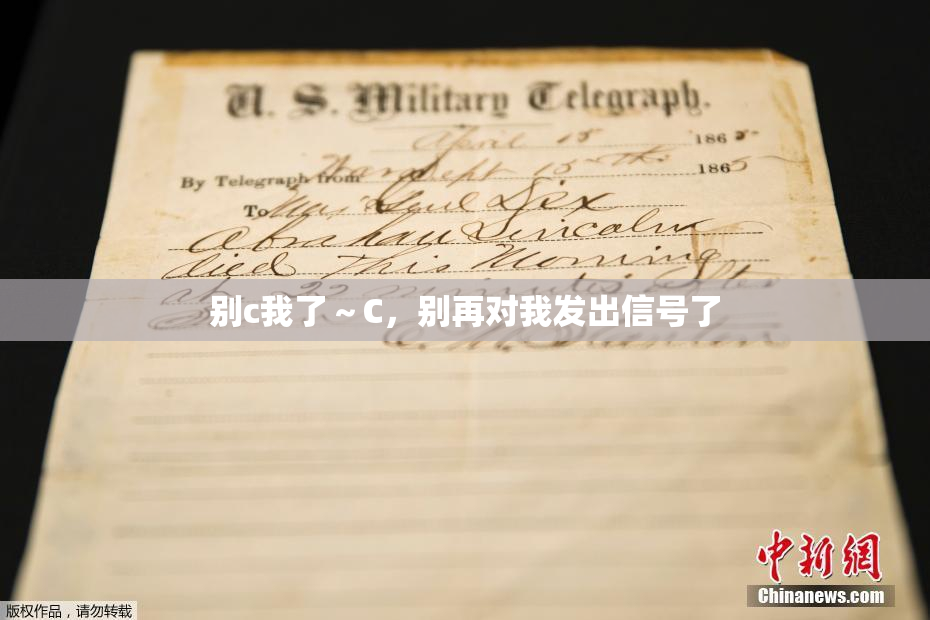 U. S. Military Telegraph.
April 15 1865
By Telegraph from War Dept 15th 1865
To Maj Genl Dix
Abraham Lincoln
died This Morning
at 22 minutes after
别c我了～C，别再对我发出信号了
E. M. Stanton
中新网
Chinanews.com
版权作品，请勿转载